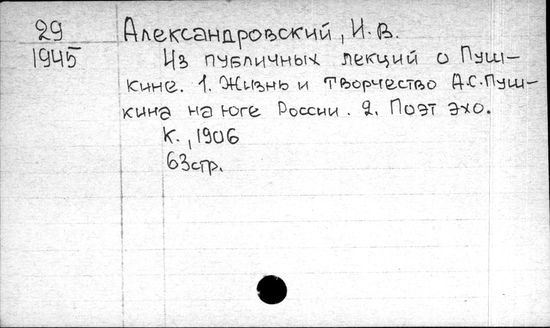 29
1945
Александровский, И.В.
Из публичных лекций о Пуш-
кине. 1. Жизнь и творчество А.С.Пуш-
кина на юге России. 2. Поэт эхо.
К., 1906
63стр.